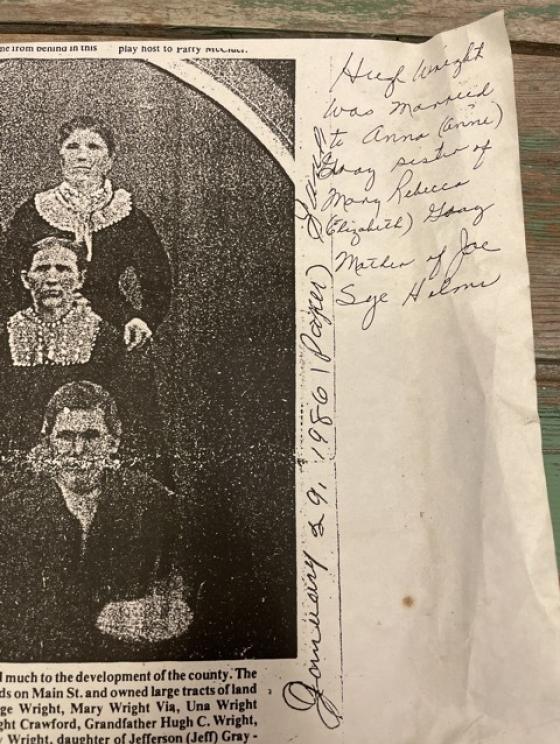 from behind in this
play host to Parry McCluer.
Hugh Wright
Was Married
to Anna (Annie)
Gray sister of
Mary Rebecca
(Elizabeth) Gray
Mother of Joe
Sye Helms
January 29, 1986 (Paper)
d much to the development of the county. The
ds on Main St. and owned large tracts of land
ge Wright, Mary Wright Via, Una Wright
ght Crawford, Grandfather Hugh C. Wright,
Wright, daughter of Jefferson (Jeff) Gray -